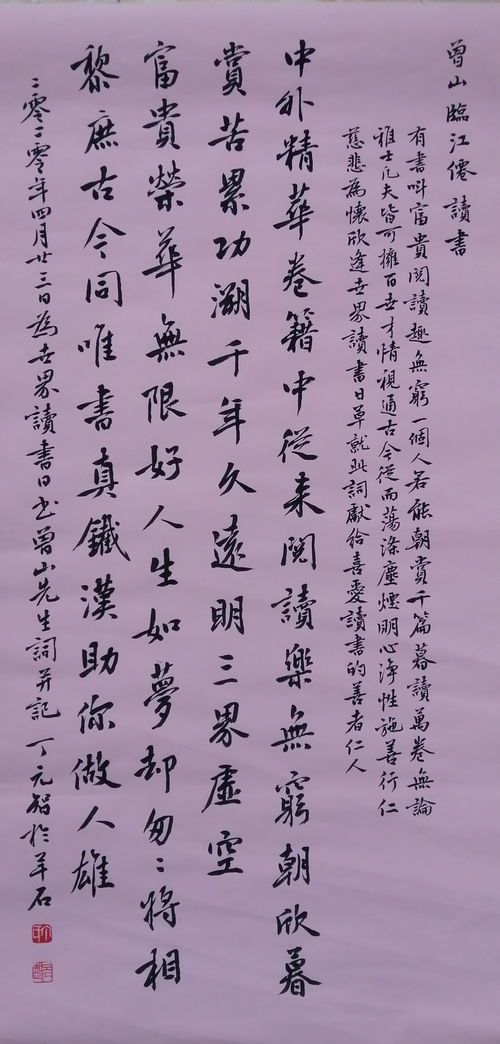 曾山臨江僊讀書
有書叫富貴閱讀趣無窮一個人若能朝賞千篇暮讀萬卷無論
雅士凡夫皆可擁百世才情視通古今從而蕩滌塵煙明心淨性施善行仁
慈悲為懷欣逢世界讀書日草就此詞獻給喜愛讀書的善者仁人
中外精華卷籍中從來閱讀樂無窮朝欣暮
賞苦累功溯千年久遠明三界虛空
富貴榮華無限好人生如夢却匆〻將相
黎庶古今同唯書真鐵漢助你做人雄
二零二零年四月廿三日為世界讀書日書曾山先生詞并記丁元智於羊石